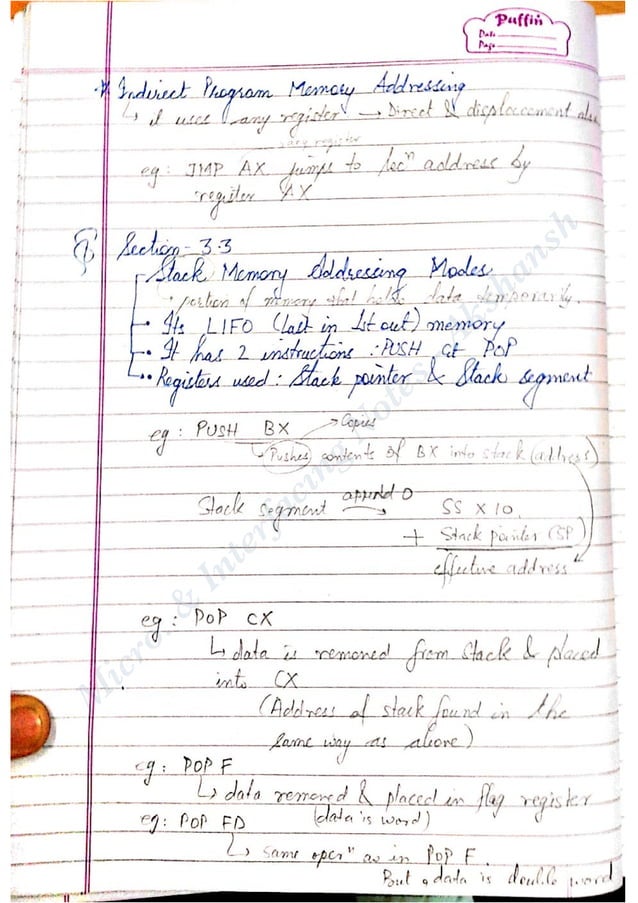 Puffin
Date
Page
Indirect Program Memory Addressing
↳ it uses any register → Direct & displacement also
any register
eg: JMP AX jumps to locⁿ address by
register AX
Section - 3.3
Stack Memory Addressing Modes
portion of memory that holds data temporarily.
• Its LIFO (Last in 1st out) memory
• It has 2 instructions : PUSH at POP
• Registers used : Stack pointer & Stack segment
eg : PUSH BX → Copies
↳ Pushes contents of BX into stack (address)
Stack segment append 0 → SS X 10
+ Stack pointer (SP)
effective address
eg : POP CX
↳ data is removed from stack & placed
into CX
(Address of stack found in the
same way as above)
eg : POP F
↳ data removed & placed in flag register
eg: POP FD (data is word)
↳ same operⁿ as in POP F.
But data is double word
Micro. & Interfacing Notes Akshansh